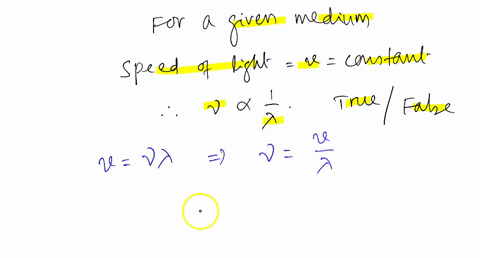 For a given medium
Speed of light = v = constant.
∴ ν ∝ 1/λ. True/False
v = νλ ⇒ ν = v/λ